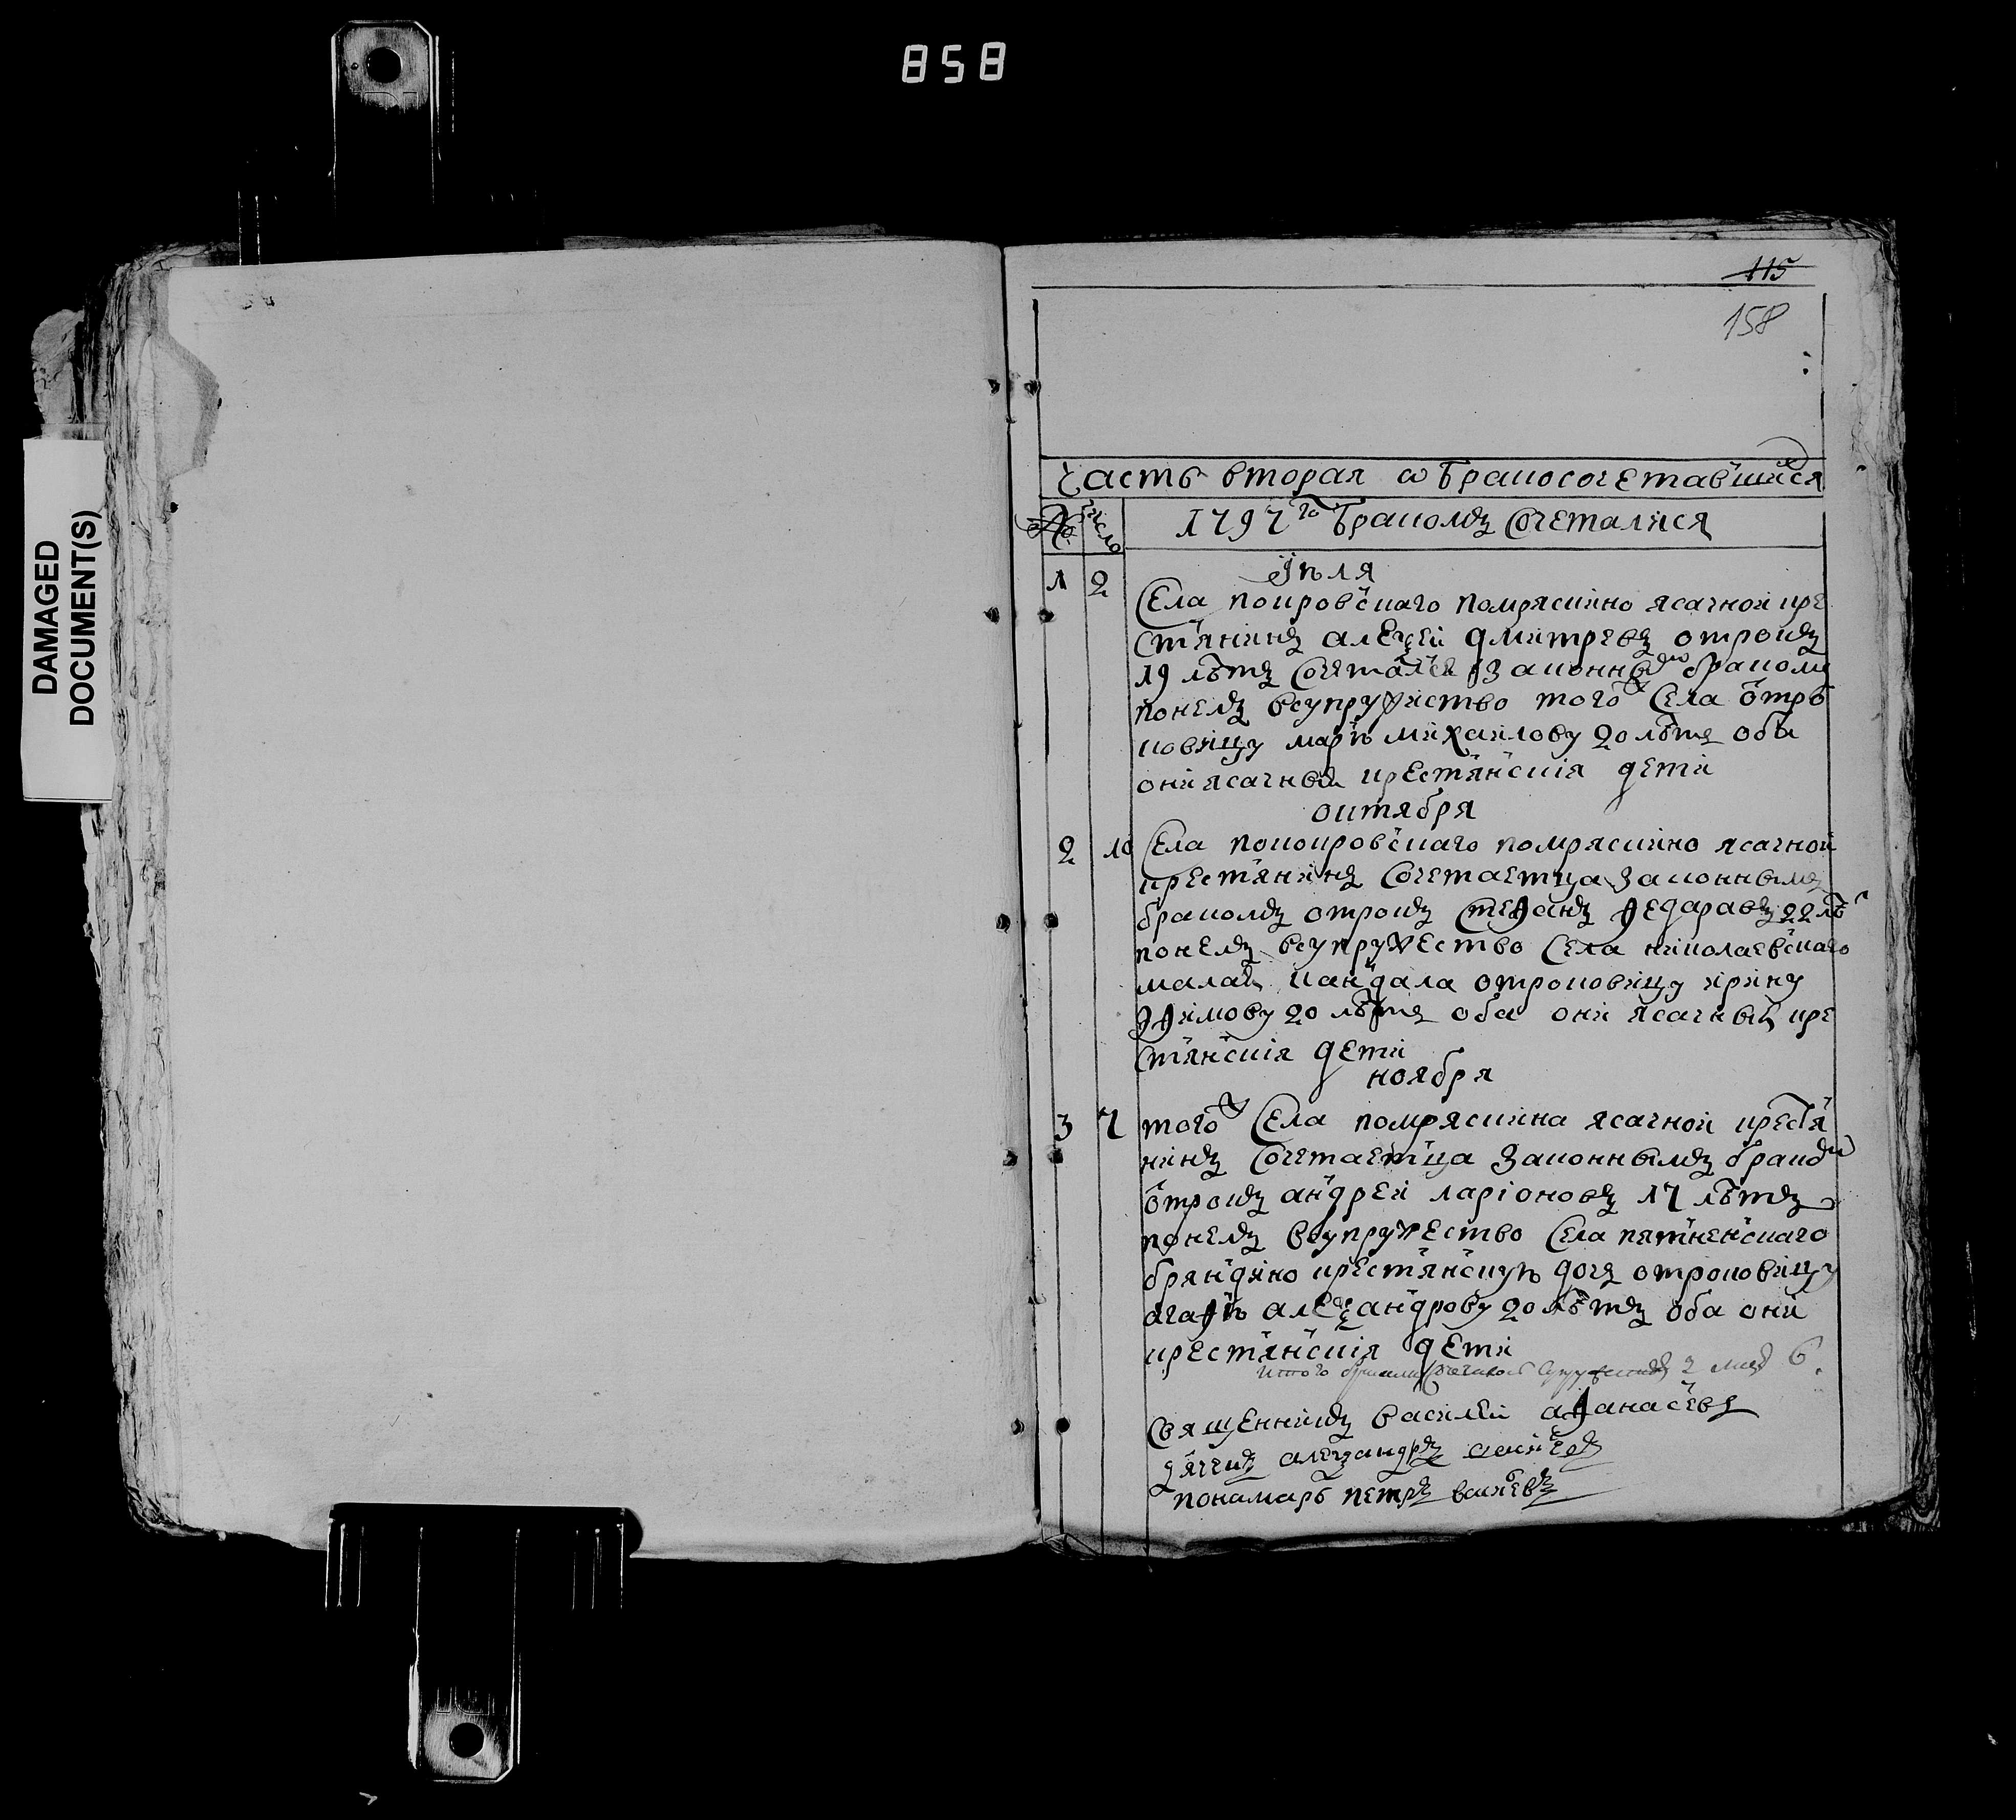 858
DAMAGED
DOCUMENT(S)
115
158
Часть вторая ѡ бракосочетавшихся
№ число 1797го бракомъ сочеталися
Іюля
1 2 Села покровскаго помряскино ясачной кре
стянинъ алеѯей дмитревъ отрокъ
19 лѣтъ сочетался законнымъ бракомъ
понелъ всупружиство тогож села отро
ковицу марю михаилову 20 лѣтъ оба
они ясачныи крестянския дети
октября
2 10 Села покровскаго помряскино ясачной
крестянинъ сочетаетца законнымъ
бракомъ отрокъ стефанъ федаравъ 22 лѣ
понелъ всупружество села николаевскаго
малаи кандала отроковицу ирину
ефимову 20 лѣтъ оба они ясачныи кре
стянския дети
ноября
3 7 тогож села помряскина ясачной крестя
нинъ сочетаетца законнымъ бракомъ
отрокъ андрей ларіоновъ 17 лѣтъ
понелъ всупружество села пятненскаго
брандино крестянскую дочь отроковицу
агафю алеѯандрову 20 лѣтъ оба они
крестянския дети
Итого 6
Священникъ василей афанасевъ
дячекъ алеѯандръ
пономарь петръ